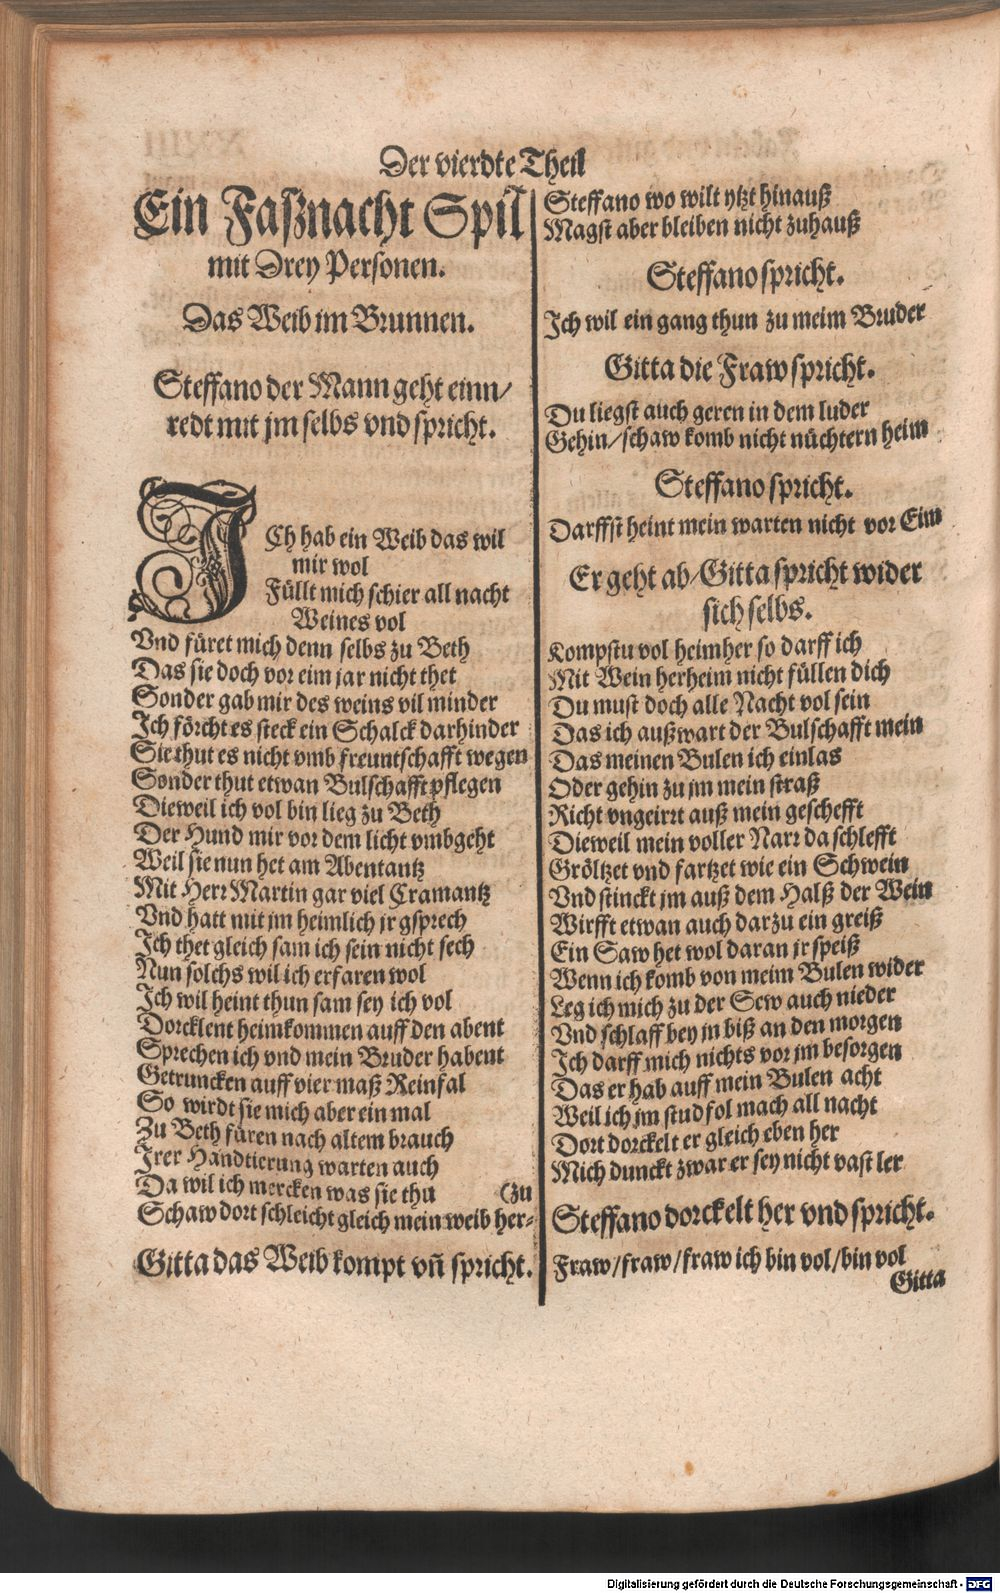 Der vierdte Theil
Ein Faßnacht Spil
mit Drey Personen.
Das Weib im Brunnen.
Steffano der Mann geht einn/
redt mit jm selbs vnd spricht.
ICh hab ein Weib das wil
mir wol
Füllt mich schier all nacht
Weines vol
Vnd füret mich denn selbs zu Beth
Das sie doch vor eim jar nicht thet
Sonder gab mir des weins vil minder
Ich förcht es steck ein Schalck darhinder
Sie thut es nicht vmb freuntschafft wegen
Sonder thut etwan Bulschafft pflegen
Dieweil ich vol bin lieg zu Beth
Der Hund mir vor dem licht vmbgeht
Weil sie nun het am Abentantz
Mit Herr Martin gar viel Cramantz
Vnd hatt mit jm heimlich jr gsprech
Ich thet gleich sam ich sein nicht sech
Nun solchs wil ich erfaren wol
Ich wil heint thun sam sey ich vol
Dorcklent heimkommen auff den abent
Sprechen ich vnd mein Bruder habent
Getruncken auff vier maß Reinfal
So wirdt sie mich aber ein mal
Zu Beth füren nach altem brauch
Irer Handtierung warten auch
Da wil ich mercken was sie thu (zu
Schaw dort schleicht gleich mein weib her-
Gitta das Weib kompt vn̄ spricht.
Steffano wo wilt ytzt hinauß
Magst aber bleiben nicht zuhauß
Steffano spricht.
Ich wil ein gang thun zu meim Bruder
Gitta die Fraw spricht.
Du liegst auch geren in dem luder
Gehin/schaw komb nicht nüchtern heim
Steffano spricht.
Darffst heint mein warten nicht vor Eim
Er geht ab/Gitta spricht wider
sich selbs.
Kompstu vol heimher so darff ich
Mit Wein herheim nicht füllen dich
Du must doch alle Nacht vol sein
Das ich außwart der Bulschafft mein
Das meinen Bulen ich einlas
Oder gehin zu jm mein straß
Richt vngeirrt auß mein geschefft
Dieweil mein voller Narr da schlefft
Gröltzet vnd fartzet wie ein Schwein
Vnd stinckt jm auß dem Halß der Wein
Wirfft etwan auch darzu ein greiß
Ein Saw het wol daran jr speiß
Wenn ich komb von meim Bulen wider
Leg ich mich zu der Sew auch nieder
Vnd schlaff bey jn biß an den morgen
Ich darff mich nichts vor jm besorgen
Das er hab auff mein Bulen acht
Weil ich jm studfol mach all nacht
Dort dorckelt er gleich eben her
Mich dunckt zwar er sey nicht vast ler
Steffano dorckelt her vnd spricht.
Fraw/fraw/fraw ich bin vol/bin vol
Gitta
Digitalisierung gefördert durch die Deutsche Forschungsgemeinschaft - DFG